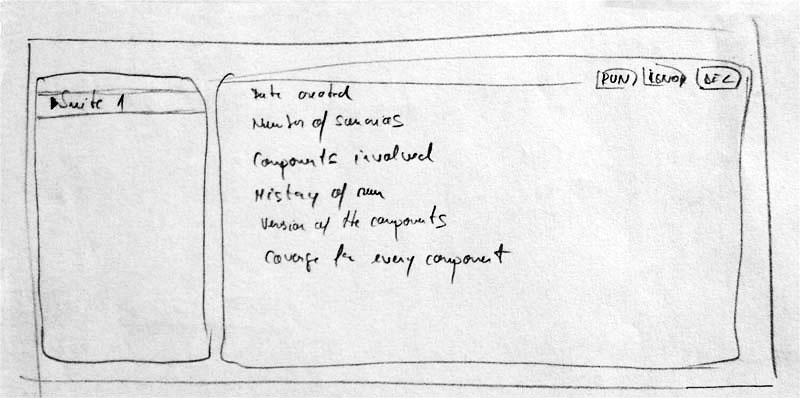 ▶Suite 1
RUN
DEL
Date created
Number of scenarios
Components involved
History of run
Version of the components
Coverge for every component